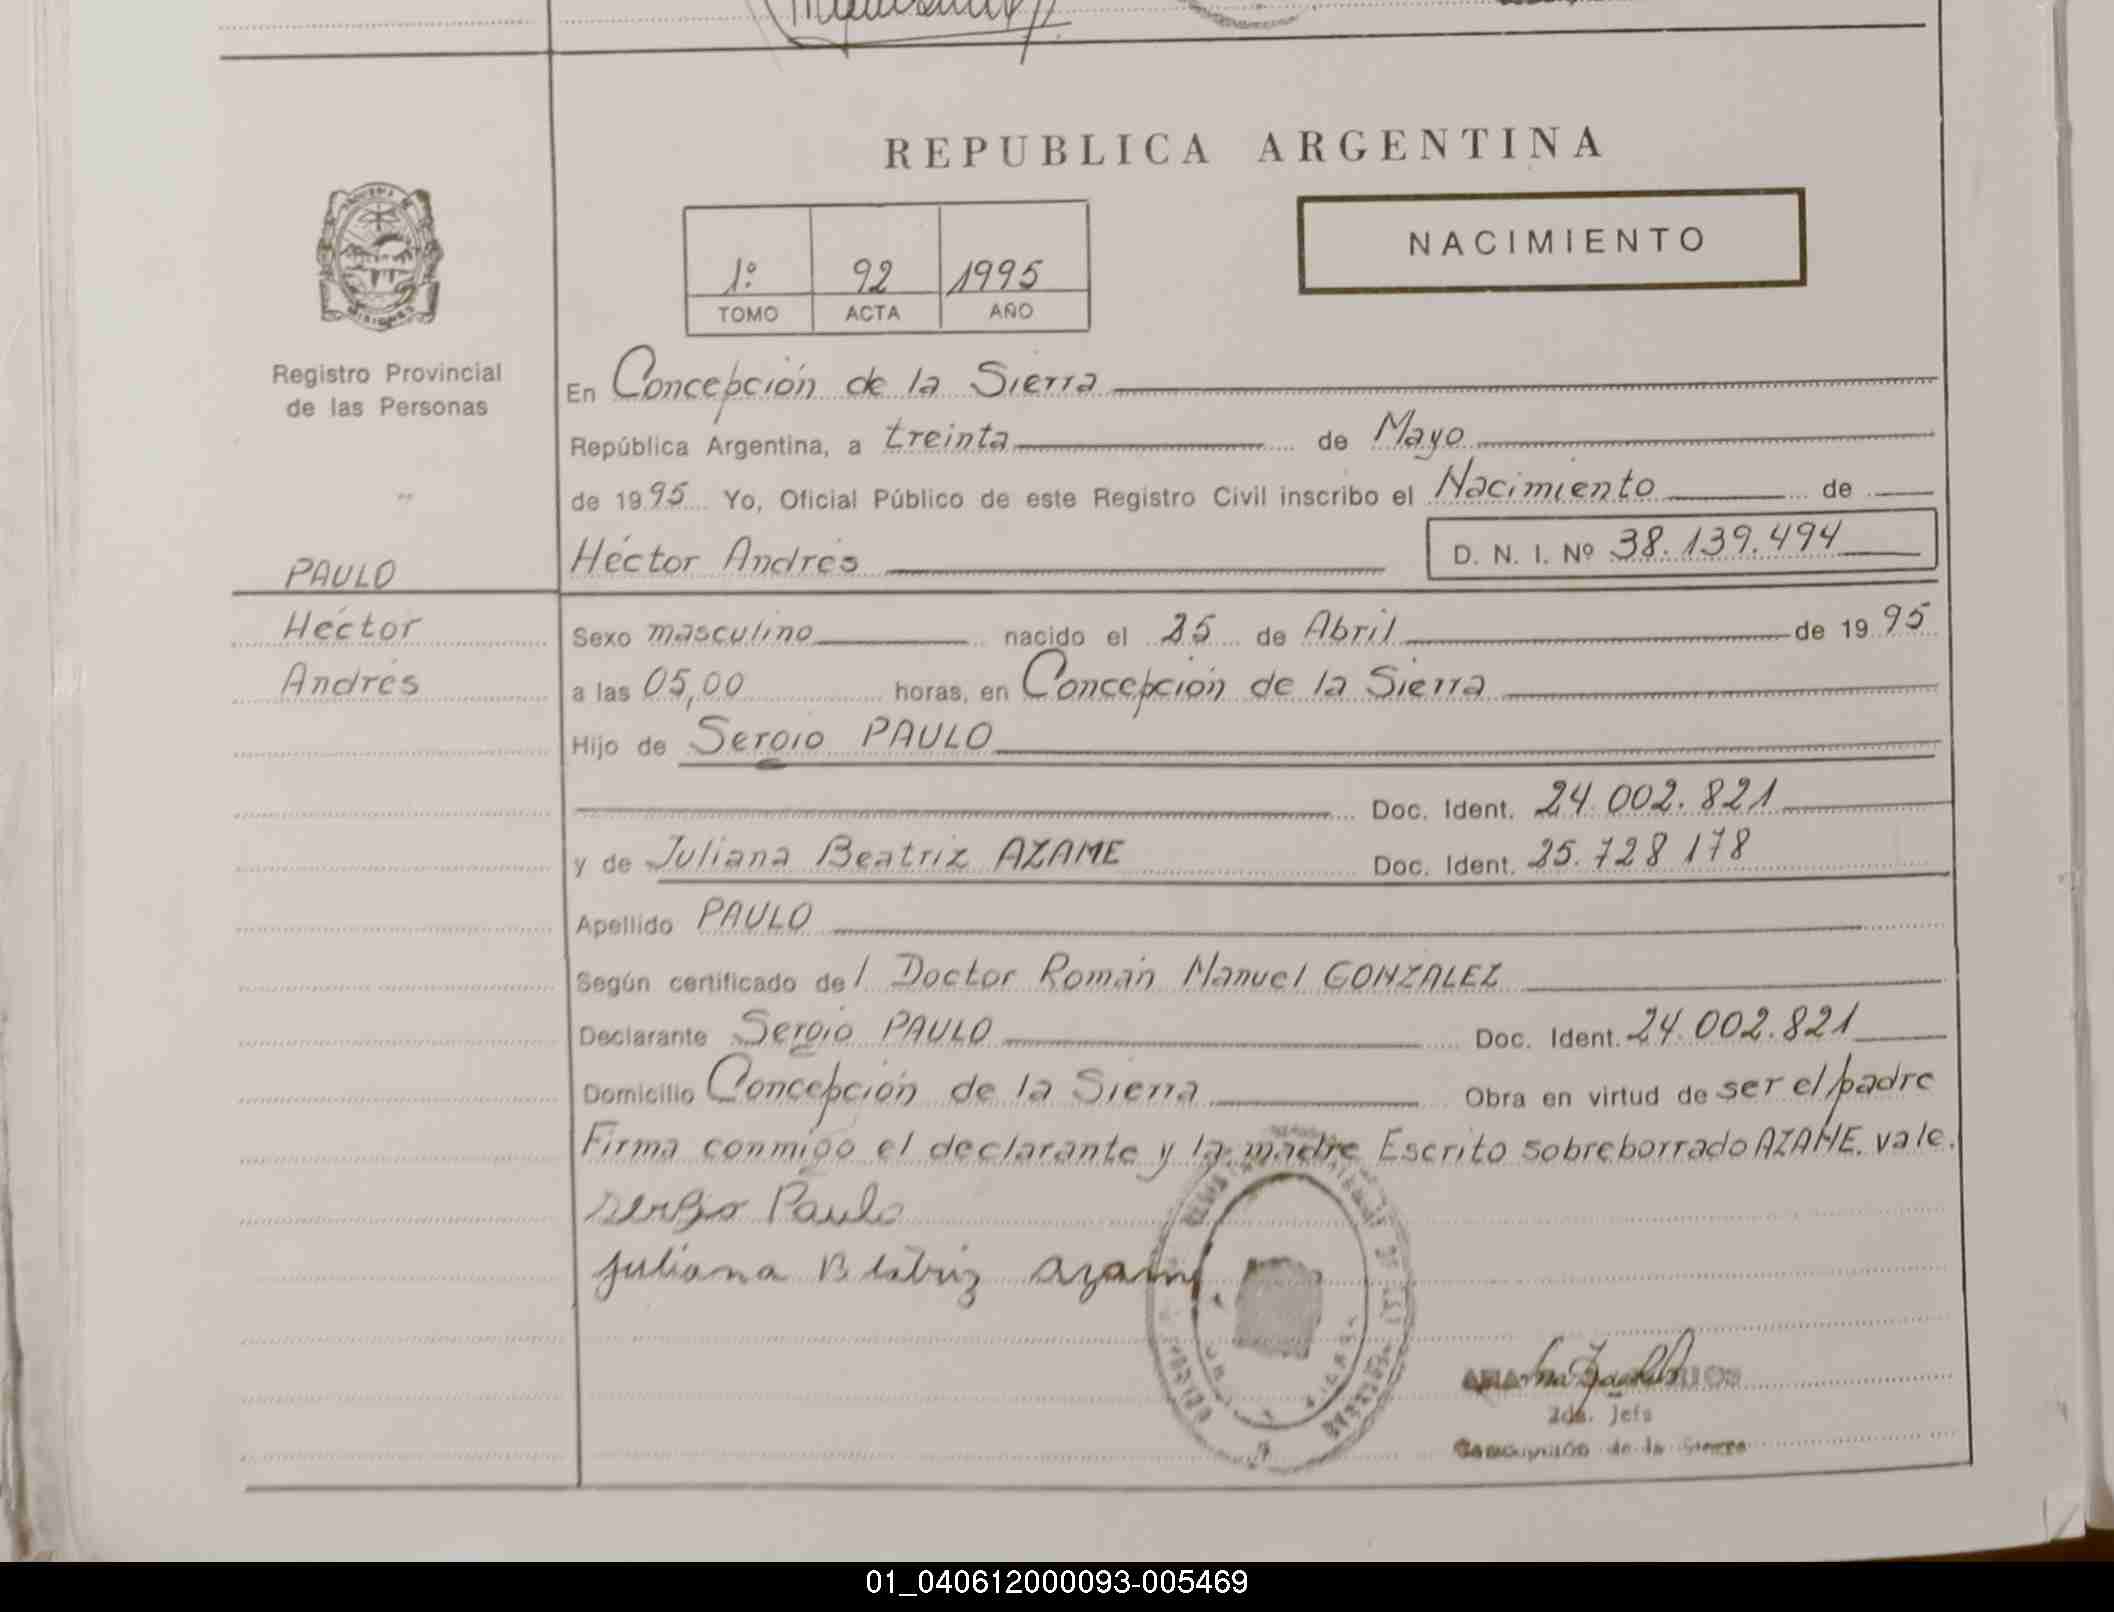 REPUBLICA ARGENTINA
NACIMIENTO
1º 92 1995
TOMO ACTA AÑO
MISIONES
Registro Provincial
de las Personas
En Concepción de la Sierra
República Argentina, a treinta de Mayo
de 1995 Yo, Oficial Público de este Registro Civil inscribo el Nacimiento de
Héctor Andrés D. N. I. Nº 38.139.494
PAULO
Héctor
Andrés
Sexo masculino nacido el 25 de Abril de 1995
a las 05,00 horas, en Concepción de la Sierra
Hijo de Sergio PAULO
Doc. Ident. 24.002.821
y de Juliana Beatriz AZAME Doc. Ident. 25.728 178
Apellido PAULO
Según certificado del Doctor Román Manuel GONZALEZ
Declarante Sergio PAULO Doc. Ident. 24.002.821
Domicilio Concepción de la Sierra Obra en virtud de ser el padre
Firma conmigo el declarante y la madre Escrito sobreborrado AZAME. vale.
sergio Paulo
Juliana Beatriz azame
2da. Jefa
Concepción de la Sierra
01_040612000093-005469